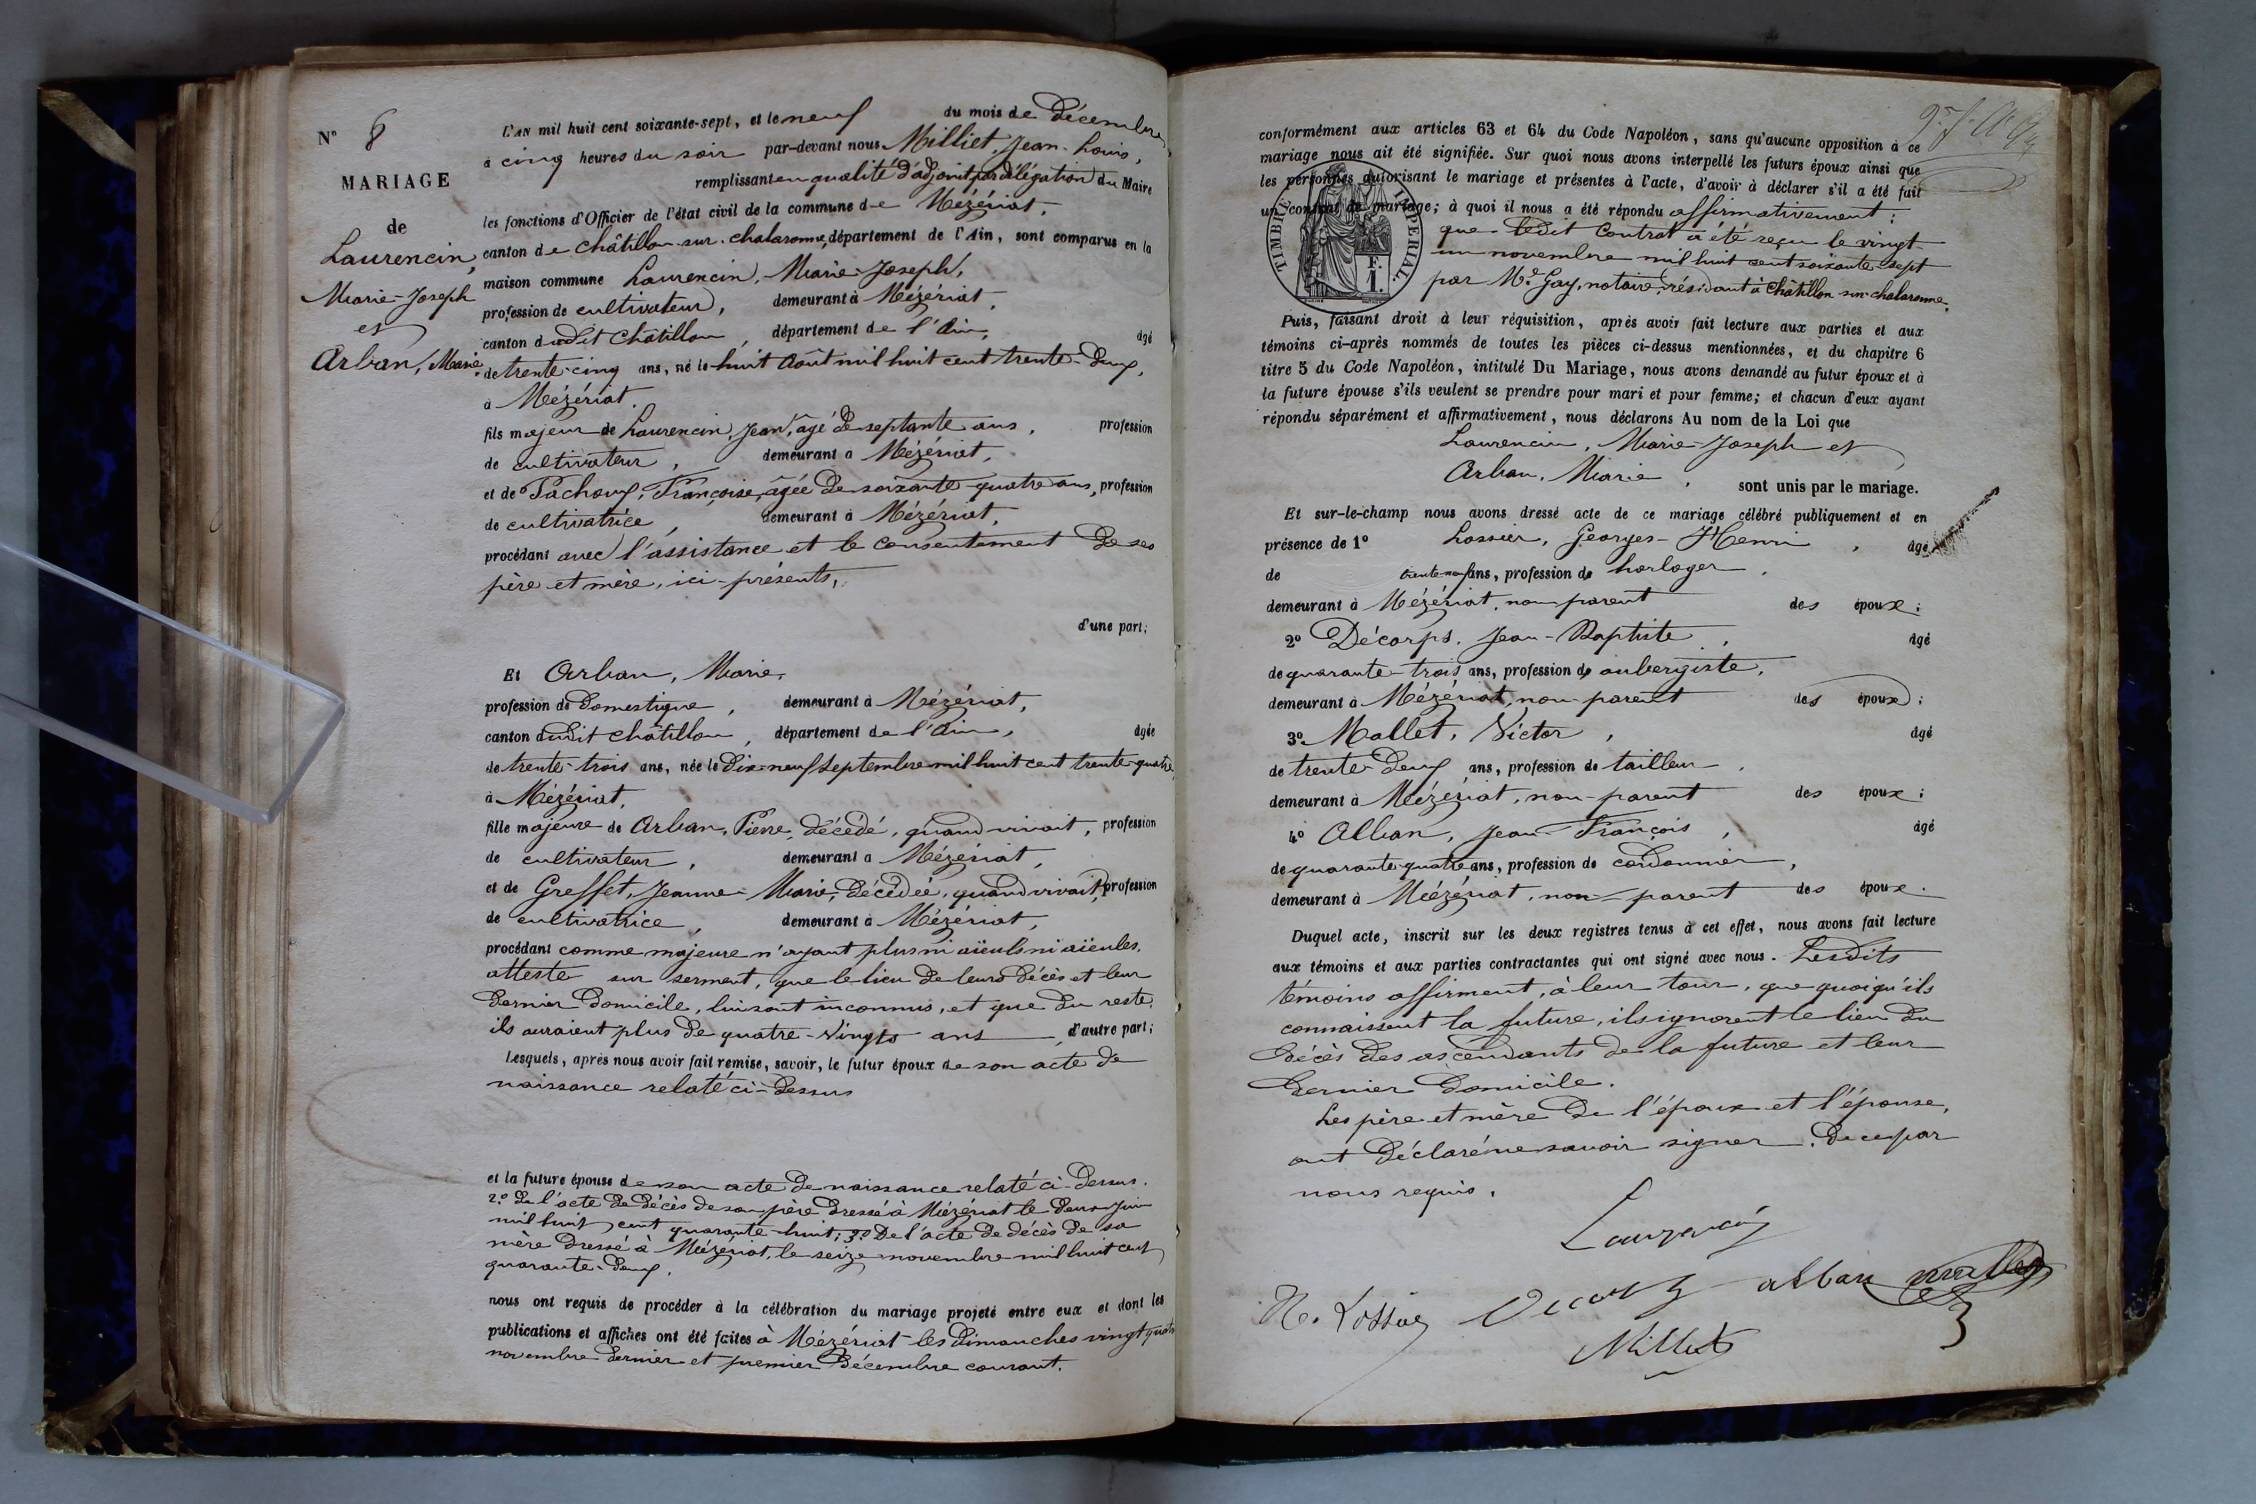 N° 8
MARIAGE
de
Laurencin,
Marie-Joseph
et
Arban, Marie.
L'AN mil huit cent soixante-sept, et le neuf du mois de Décembre
à cinq heures du soir par-devant nous Milliet, Jean-Louis,
remplissant en qualité d'adjoint par délégation du Maire
les fonctions d'Officier de l'état civil de la commune de Mézériat,
canton de Châtillon-sur-chalaronne, département de l'Ain, sont comparus en la
maison commune Laurencin, Marie-Joseph,
profession de cultivateur, demeurant à Mézériat,
canton dudit Châtillon, département de l'Ain, âgé
de trente-cinq ans, né le huit Août mil huit cent trente-deux,
à Mézériat.
fils majeur de Laurencin, Jean, âgé de septante ans, profession
de cultivateur, demeurant à Mézériat,
et de Pachoux, Françoise, âgée de soixante-quatre ans, profession
de cultivatrice, demeurant à Mézériat,
procédant avec l'assistance et le consentement de ses
père et mère, ici-présents,
d'une part;
Et Arban, Marie,
profession de Domestique, demeurant à Mézériat,
canton dudit Châtillon, département de l'Ain, âgée
de trente-trois ans, née le Dix-neuf Septembre mil huit cent trente-quatre
à Mézériat,
fille majeure de Arban, Pierre, décédé, quand vivait, profession
de cultivateur, demeurant à Mézériat,
et de Greffet, Jeanne-Marie, décédée, quand vivait, profession
de cultivatrice, demeurant à Mézériat,
procédant comme majeure n'ayant plus ni aïeuls ni aïeules,
atteste sur serment, que le lieu de leurs décès et leur
dernier domicile, lui sont inconnus, et que du reste,
ils auraient plus de quatre-vingts ans d'autre part;
Lesquels, après nous avoir fait remise, savoir, le futur époux de son acte de
naissance relaté ci-dessus
et la future épouse de son acte de naissance relaté ci-dessus.
2° de l'acte de décès de son père dressé à Mézériat le deux Juin
mil huit cent quarante-huit; 3° De l'acte de décès de sa
mère dressé à Mézériat, le seize novembre mil huit cent
quarante-deux,
nous ont requis de procéder à la célébration du mariage projeté entre eux et dont les
publications et affiches ont été faites à Mézériat les dimanches vingt quatre
novembre dernier et premier Décembre courant.
conformément aux articles 63 et 64 du Code Napoléon, sans qu'aucune opposition à ce
mariage nous ait été signifiée. Sur quoi nous avons interpellé les futurs époux ainsi que
les personnes autorisant le mariage et présentes à l'acte, d'avoir à déclarer s'il a été fait
un contrat de mariage; à quoi il nous a été répondu affirmativement;
TIMBRE IMPERIAL.
F.
1.
que ledit Contrat a été reçu le vingt-
un novembre mil huit cent soixante-sept
par Me Gay, notaire, résidant à Châtillon-sur-chalaronne.
Puis, faisant droit à leur réquisition, après avoir fait lecture aux parties et aux
témoins ci-après nommés de toutes les pièces ci-dessus mentionnées, et du chapitre 6
titre 5 du Code Napoléon, intitulé Du Mariage, nous avons demandé au futur époux et à
la future épouse s'ils veulent se prendre pour mari et pour femme; et chacun d'eux ayant
répondu séparément et affirmativement, nous déclarons Au nom de la Loi que
Laurencin, Marie-Joseph et
Arban, Marie, sont unis par le mariage.
Et sur-le-champ nous avons dressé acte de ce mariage célébré publiquement et en
présence de 1° Lossier, Georges-Henri, âgé
de trente-neuf ans, profession de horloger,
demeurant à Mézériat, non parent des époux;
2° Décorps, Jean-Baptiste, âgé
de quarante-trois ans, profession de aubergiste,
demeurant à Mézériat, non parent des époux;
3° Mallet, Victor, âgé
de trente-deux ans, profession de tailleur,
demeurant à Mézériat, non-parent des époux;
4° Alban, Jean-François, âgé
de quarante-quatre ans, profession de cordonnier,
demeurant à Mézériat, non-parent des époux.
Duquel acte, inscrit sur les deux registres tenus à cet effet, nous avons fait lecture
aux témoins et aux parties contractantes qui ont signé avec nous. Lesdits
témoins affirment, à leur tour, que quoiqu'ils
connaissent la future, ils ignorent le lieu du
décès des ascendants de la future et leur
dernier domicile.
Les père et mère de l'époux et l'épouse,
ont déclaré ne savoir signer, de ce par
nous requis.
Laurencin
H. Lossier Decorps alban mallet
Milliet